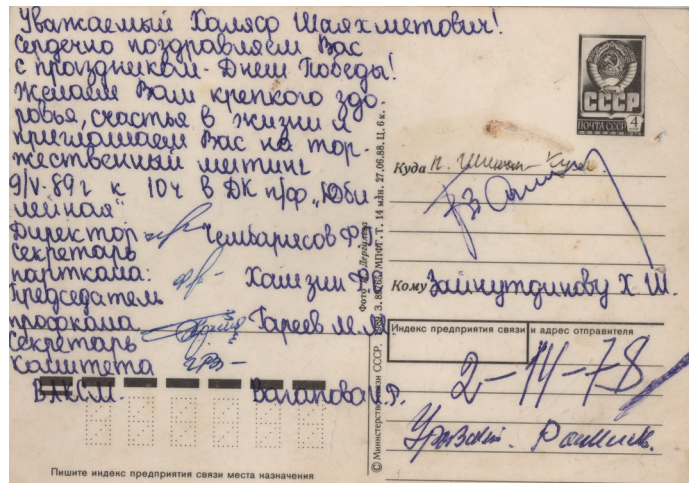 Уважаемый Халяф Шаяхметович!
Сердечно поздравляем Вас
с праздником - Днем Победы!
Желаем Вам крепкого здо-
ровья, счастья в жизни и
приглашаем Вас на тор-
жественный митинг
9/V-89г к 10ч в ДК п/ф „Юби
лейная"
Директор Чембарисов Ф
секретарь
парткома: Хамзин Ф
Председатель
профкома Гареев М.М
секретарь
Комитета
ВЛКСМ. Валапова Р.
Пишите индекс предприятия связи места назначения
Фото
© Министерство связи СССР.
МПФГ. Т. 14 млн. 27.06.88. Ц. 6 к.
СССР
ПОЧТА СССР 4
Куда п.
Кому Зайнутдинову Х.Ш.
Индекс предприятия связи и адрес отправителя
2-14-78